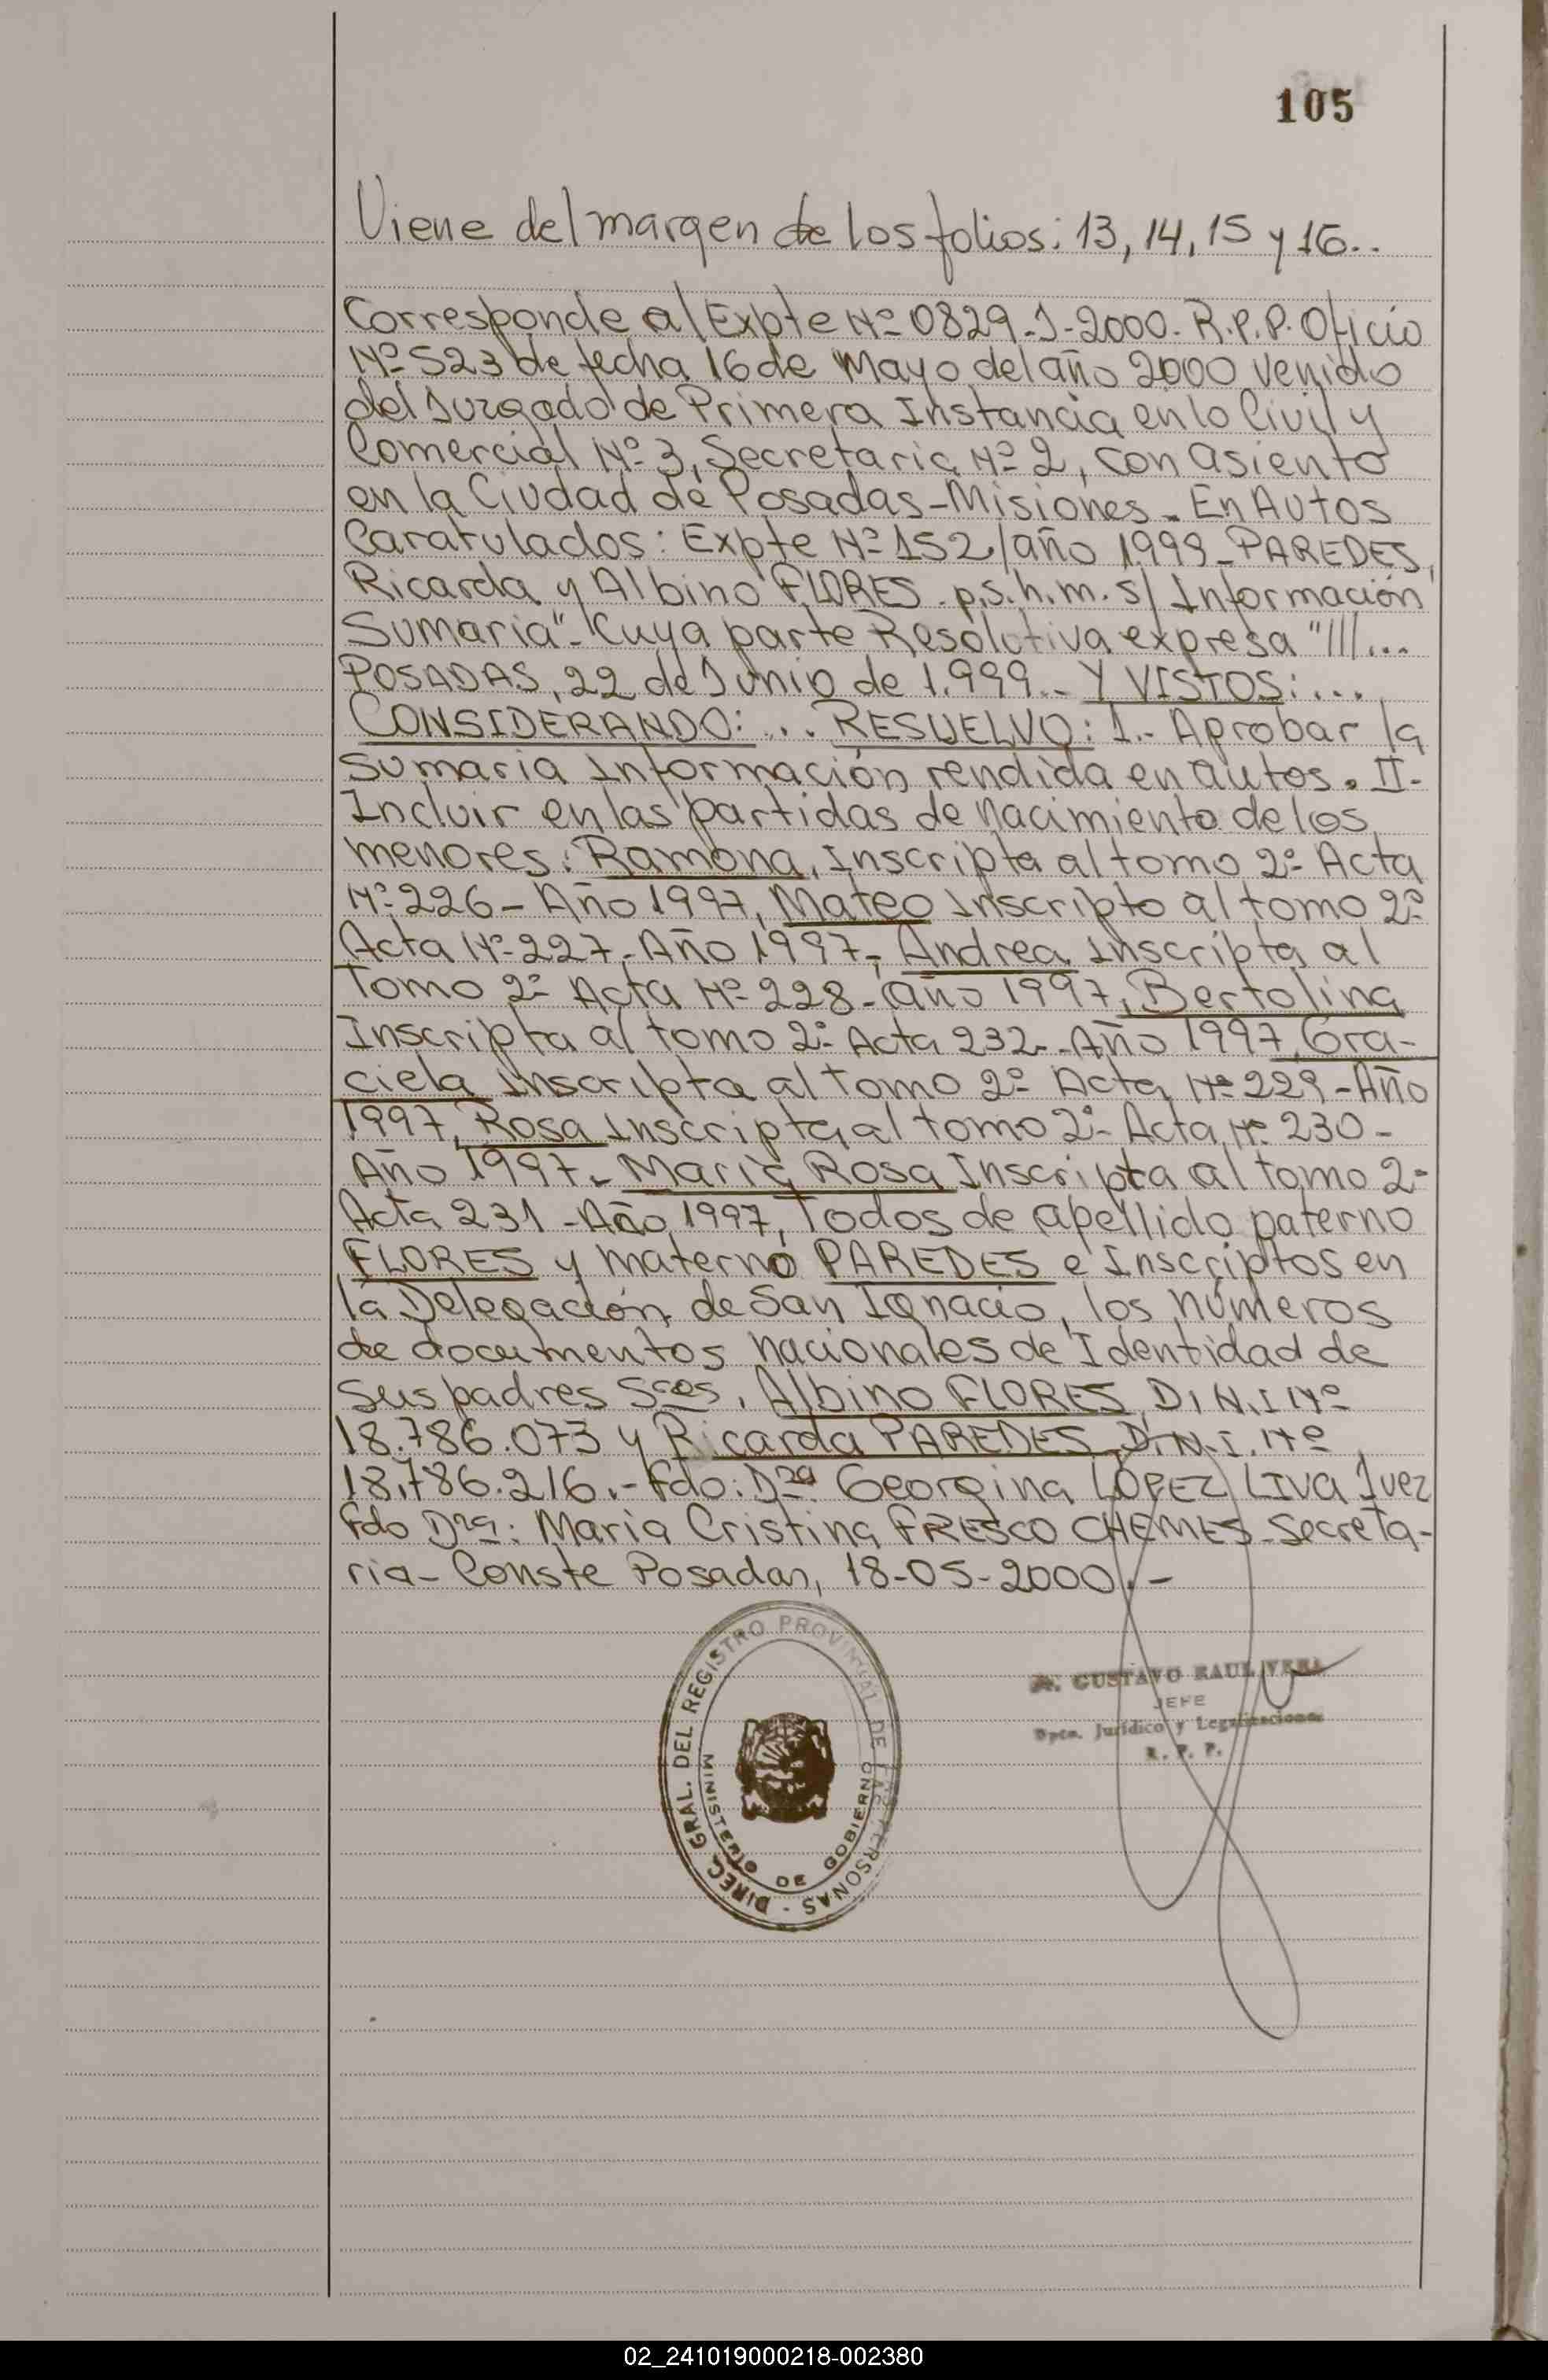 105
Viene del margen de los folios: 13, 14, 15 y 16..
Corresponde al Expte Nº 0829-J-2000- R.P.P. Oficio
Nº 523 de fecha 16 de Mayo del año 2000 venido
del Juzgado de Primera Instancia en lo Civil y
Comercial Nº 3, Secretaria Nº 2, con asiento
en la Ciudad de Posadas-Misiones- En Autos
Caratulados: Expte Nº 152/año 1999- PAREDES,
Ricarda y Albino FLORES. p.s.h.m. s/ Información
Sumaria"- Cuya parte Resolutiva expresa "///...
POSADAS, 22 de Junio de 1.999.- Y VISTOS: ...
CONSIDERANDO: ... RESUELVO: 1.- Aprobar la
Sumaria Información rendida en autos. II-
Incluir en las partidas de nacimiento de los
menores: Ramona, Inscripta al tomo 2º Acta
Nº 226- Año 1997, Mateo Inscripto al tomo 2º
Acta Nº 227- Año 1997, Andrea Inscripta al
Tomo 2º Acta Nº 228- año 1997, Bertolina
Inscripta al tomo 2º Acta 232.- Año 1997, Gra-
ciela Inscripta al tomo 2º Acta Nº 229- Año
1997, Rosa Inscripta al tomo 2º Acta Nº 230-
Año 1997.- Maria Rosa Inscripta al tomo 2º
Acta 231- Año 1997, Todos de apellido paterno
FLORES y materno PAREDES e Inscriptos en
la Delegación de San Ignacio, los números
de documentos nacionales de Identidad de
sus padres Sres. Albino FLORES D.N.I Nº
18.786.073 y Ricarda PAREDES, D.N.I. Nº
18.786.216.- Fdo: Dra Georgina LÓPEZ LIVA Juez
Fdo Dra: Maria Cristina FRESCO CHEMES- Secreta-
ria- Conste Posadas, 18-05-2000.-
DIREC. GRAL. DEL REGISTRO PROVINCIAL DE LAS PERSONAS -
MINISTERIO DE GOBIERNO
GUSTAVO RAUL VERA
JEFE
Dpto. Jurídico y Legalizaciones
R. P. P.
02_241019000218-002380